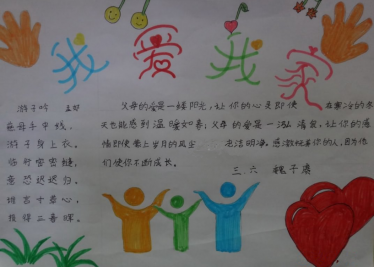 我爱我家
游子吟 孟郊
慈母手中线，
游子身上衣。
临行密密缝，
意恐迟迟归。
谁言寸草心，
报得三春晖。
父母的爱是一缕阳光，让你的心灵即使在寒冷的冬
天也能感到温暖如春；父母的爱是一泓清泉，让你的感
情即使蒙上岁月的风尘 也洁明净。感激抚养你的人，因为他
们使你不断成长。
三.六 魏子涵